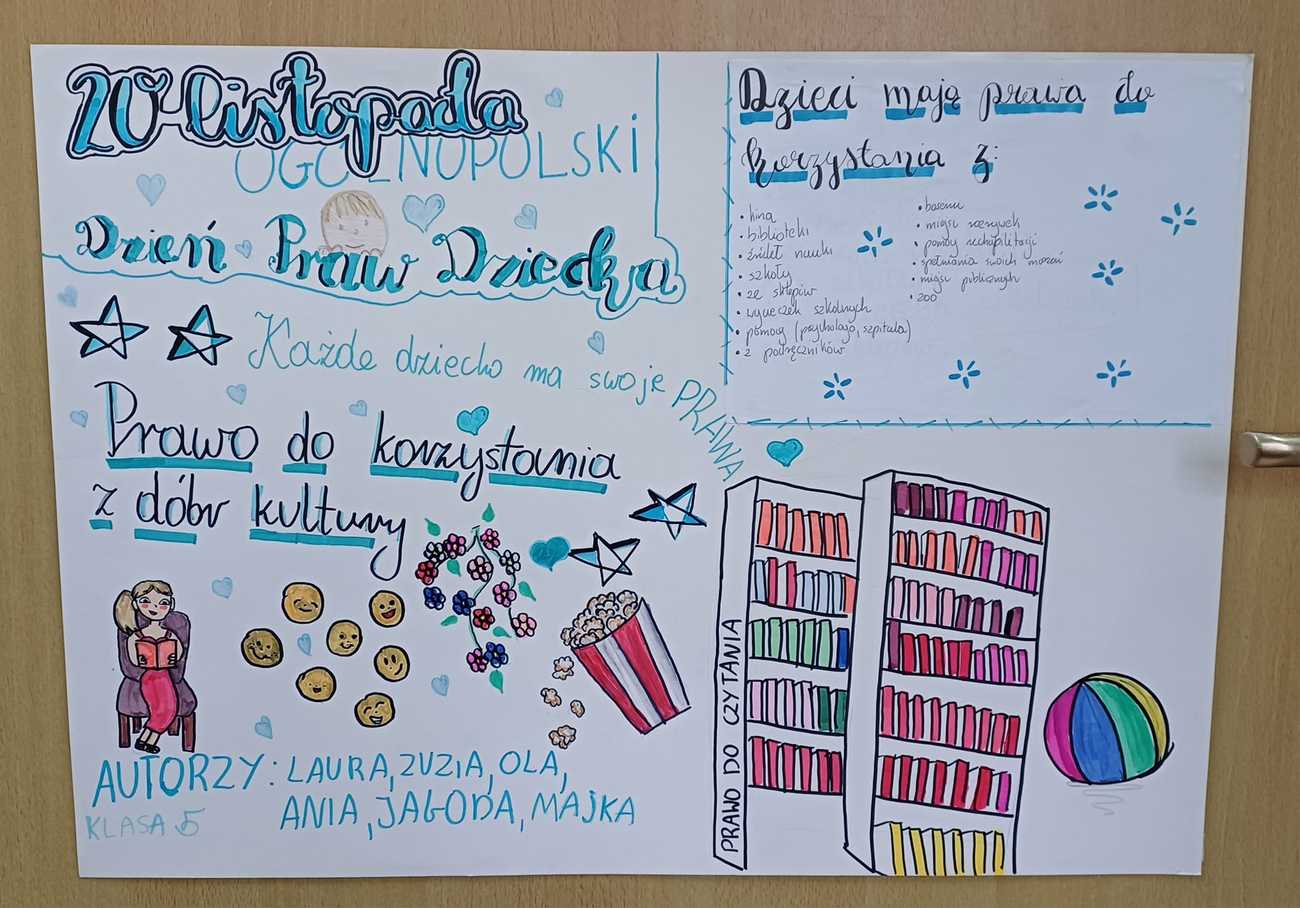 20 listopada
OGÓLNOPOLSKI
Dzień Praw Dziecka
Każde dziecko ma swoje PRAWA
Prawo do korzystania
z dóbr kultury
AUTORZY: LAURA, ZUZIA, OLA,
ANIA, JAGODA, MAJKA
KLASA 5
Dzieci mają prawa do
korzystania z:
• kina
• biblioteki
• źródeł nauki
• szkoły
• ze sklepów
• wycieczek szkolnych
• pomocy (psychologa, szpitala)
• z podręczników
• basenu
• miejsc rozrywek
• pomocy rechabilitacji
• spełniania swoich marzeń
• miejsc publicznych
• zoo
PRAWO DO CZYTANIA